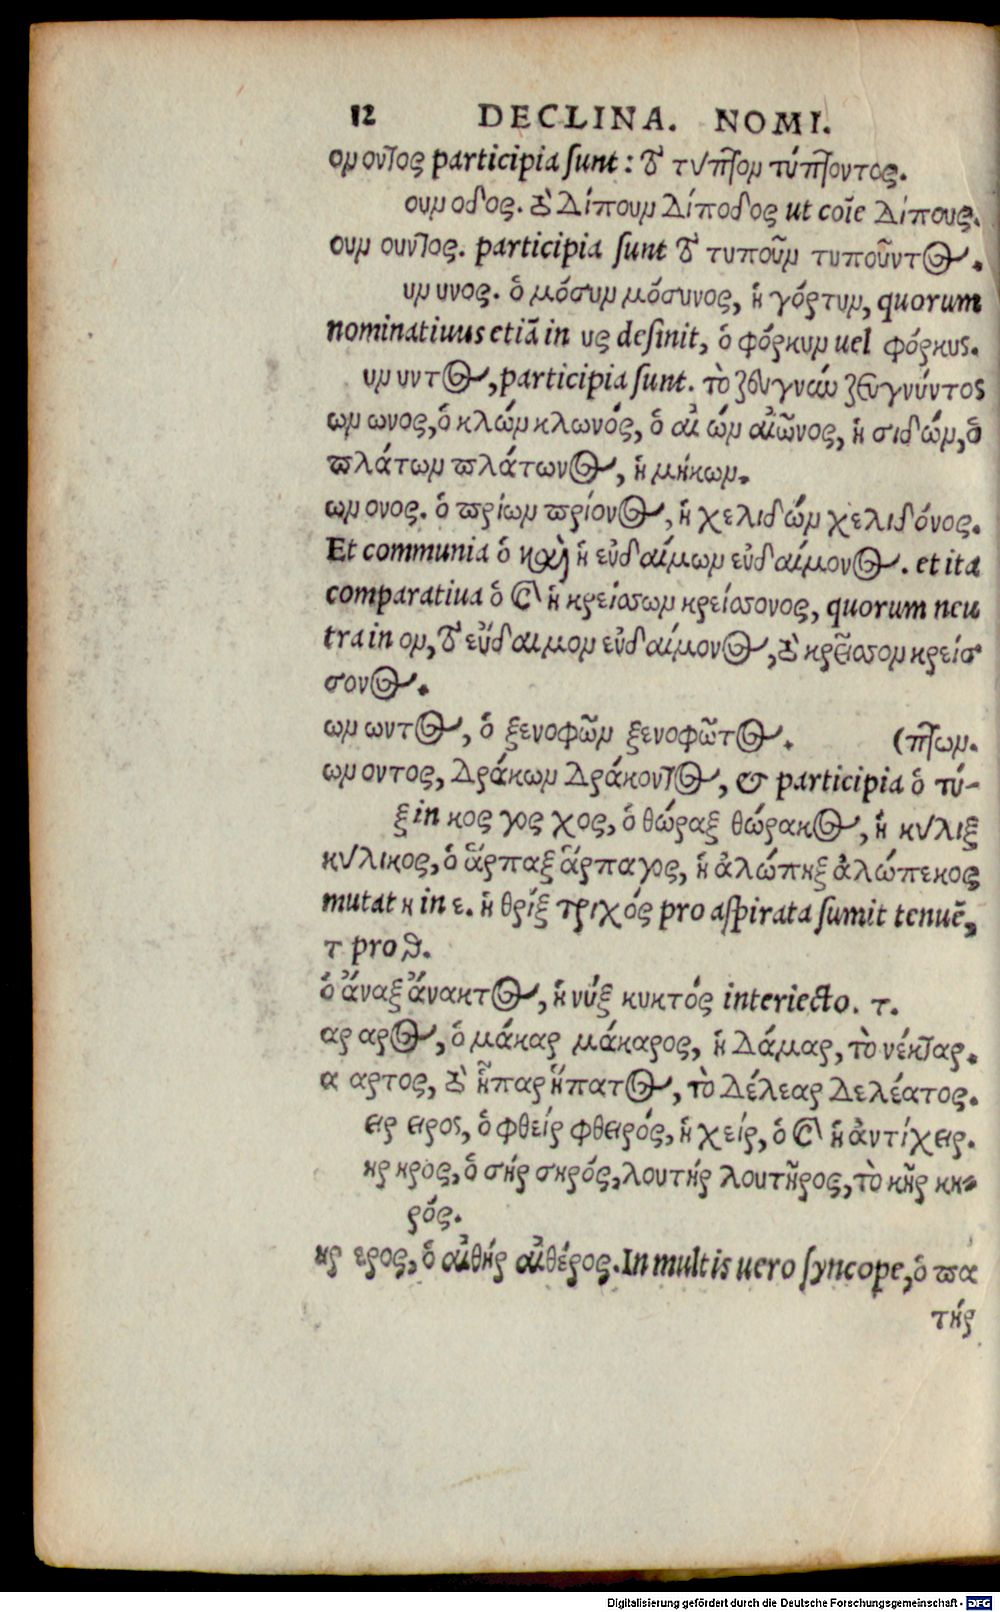 12 DECLINA. NOMI.
ον οντος participia sunt: τὸ τύπτον τύπτοντος.
ουν οδος. τὸ δίπουν δίποδος ut coīe δίπους.
ουν ουντος. participia sunt τὸ τυποῦν τυποῦντος.
υν υνος. ὁ μόσυν μόσυνος, ἡ γόρτυν, quorum
nominatiuus etiā in υς desinit, ὁ φόρκυν uel φόρκυς.
υν υντος, participia sunt. τὸ ζευγνύν ζευγνύντος
ων ωνος, ὁ κλών κλωνός, ὁ αἰών αἰῶνος, ἡ σιδών, ὁ
πλάτων πλάτωνος, ἡ μήκων.
ων ονος. ὁ πρίων πρίονος, ἡ χελιδών χελιδόνος.
Et communia ὁ καὶ ἡ εὐδαίμων εὐδαίμονος. et ita
comparatiua ὁ καὶ ἡ κρείσσων κρείσσονος, quorum neu
tra in ον, τὸ εὔδαιμον εὐδαίμονος, τὸ κρεῖσσον κρείσ
σονος.
ων ωντος, ὁ ξενοφῶν ξενοφῶτος. (πτων.
ων οντος, δράκων δράκοντος, & participia ὁ τύ-
ξ in κος γος χος, ὁ θώραξ θώρακος, ἡ κύλιξ
κύλικος, ὁ ἅρπαξ ἅρπαγος, ἡ ἀλώπηξ ἀλώπεκος
mutat η in ε. ἡ θρίξ τριχός pro aspirata sumit tenuē,
τ pro θ.
ὁ ἄναξ ἄνακτος, ἡ νύξ κυκτός interiecto. τ.
αρ αρος, ὁ μάκαρ μάκαρος, ἡ δάμαρ, τὸ νέκταρ.
α αρτος, τὸ ἧπαρ ἥπατος, τὸ δέλεαρ δελέατος.
ειρ ειρος, ὁ φθείρ φθειρός, ἡ χείρ, ὁ καὶ ἡ ἀντίχειρ.
ηρ ηρος, ὁ σήρ σηρός, λουτήρ λουτῆρος, τὸ κῆρ κη-
ρός.
ηρ ερος, ὁ αἰθήρ αἰθέρος. In multis uero syncope, ὁ πα
τήρ
Digitalisierung gefördert durch die Deutsche Forschungsgemeinschaft - DFG